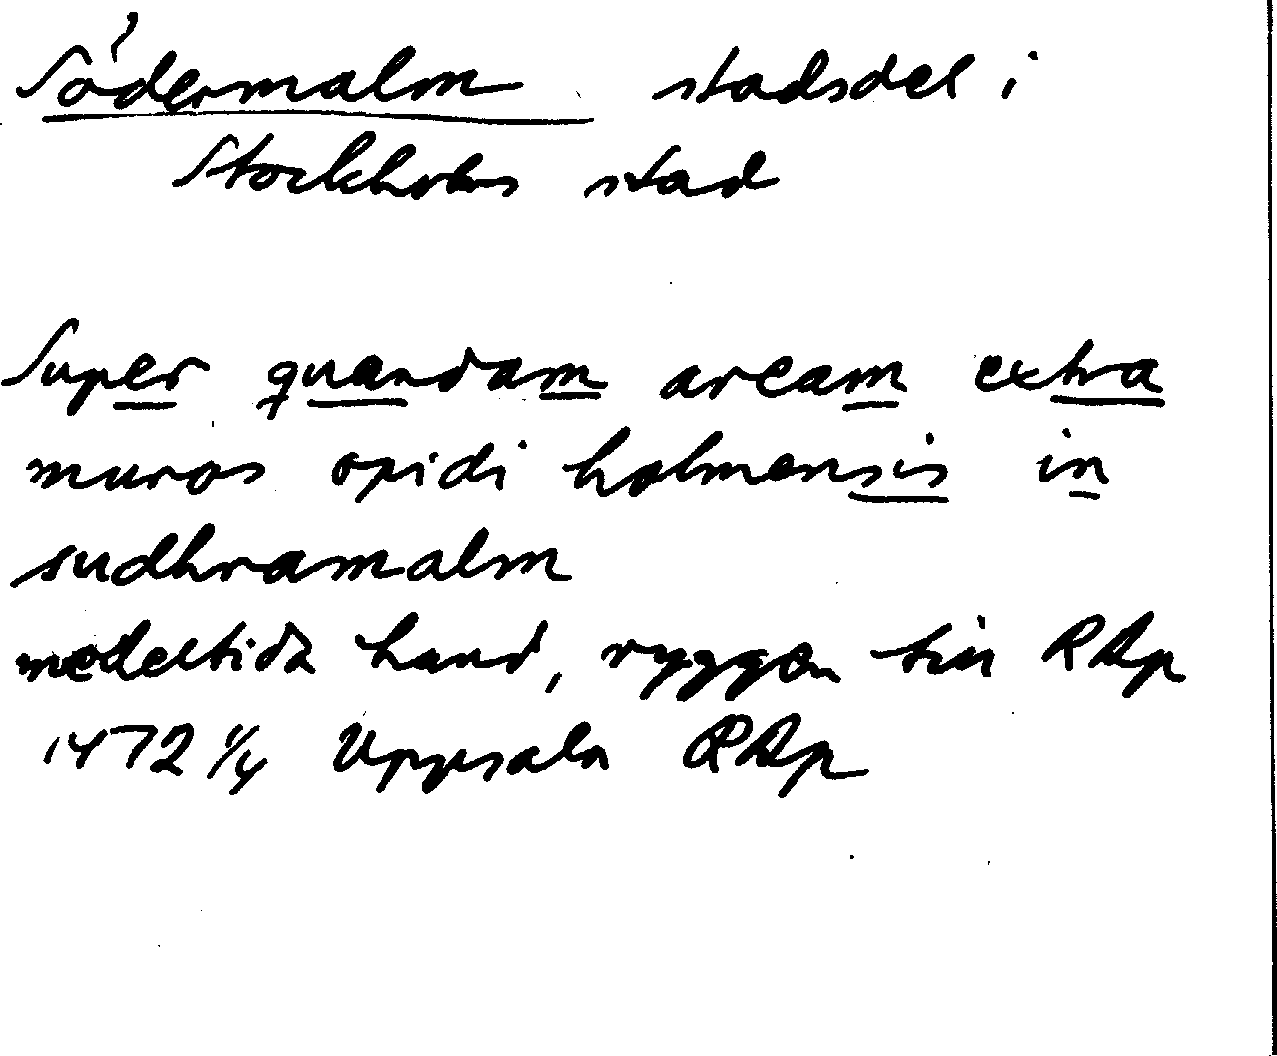 Södermalm stadsdel i
Stockholms stad
Super quandam aream extra
muros opidi holmensis in
sudhramalm
medeltida hand, ryggen till RAp
1472 1/4 Uppsala RAp